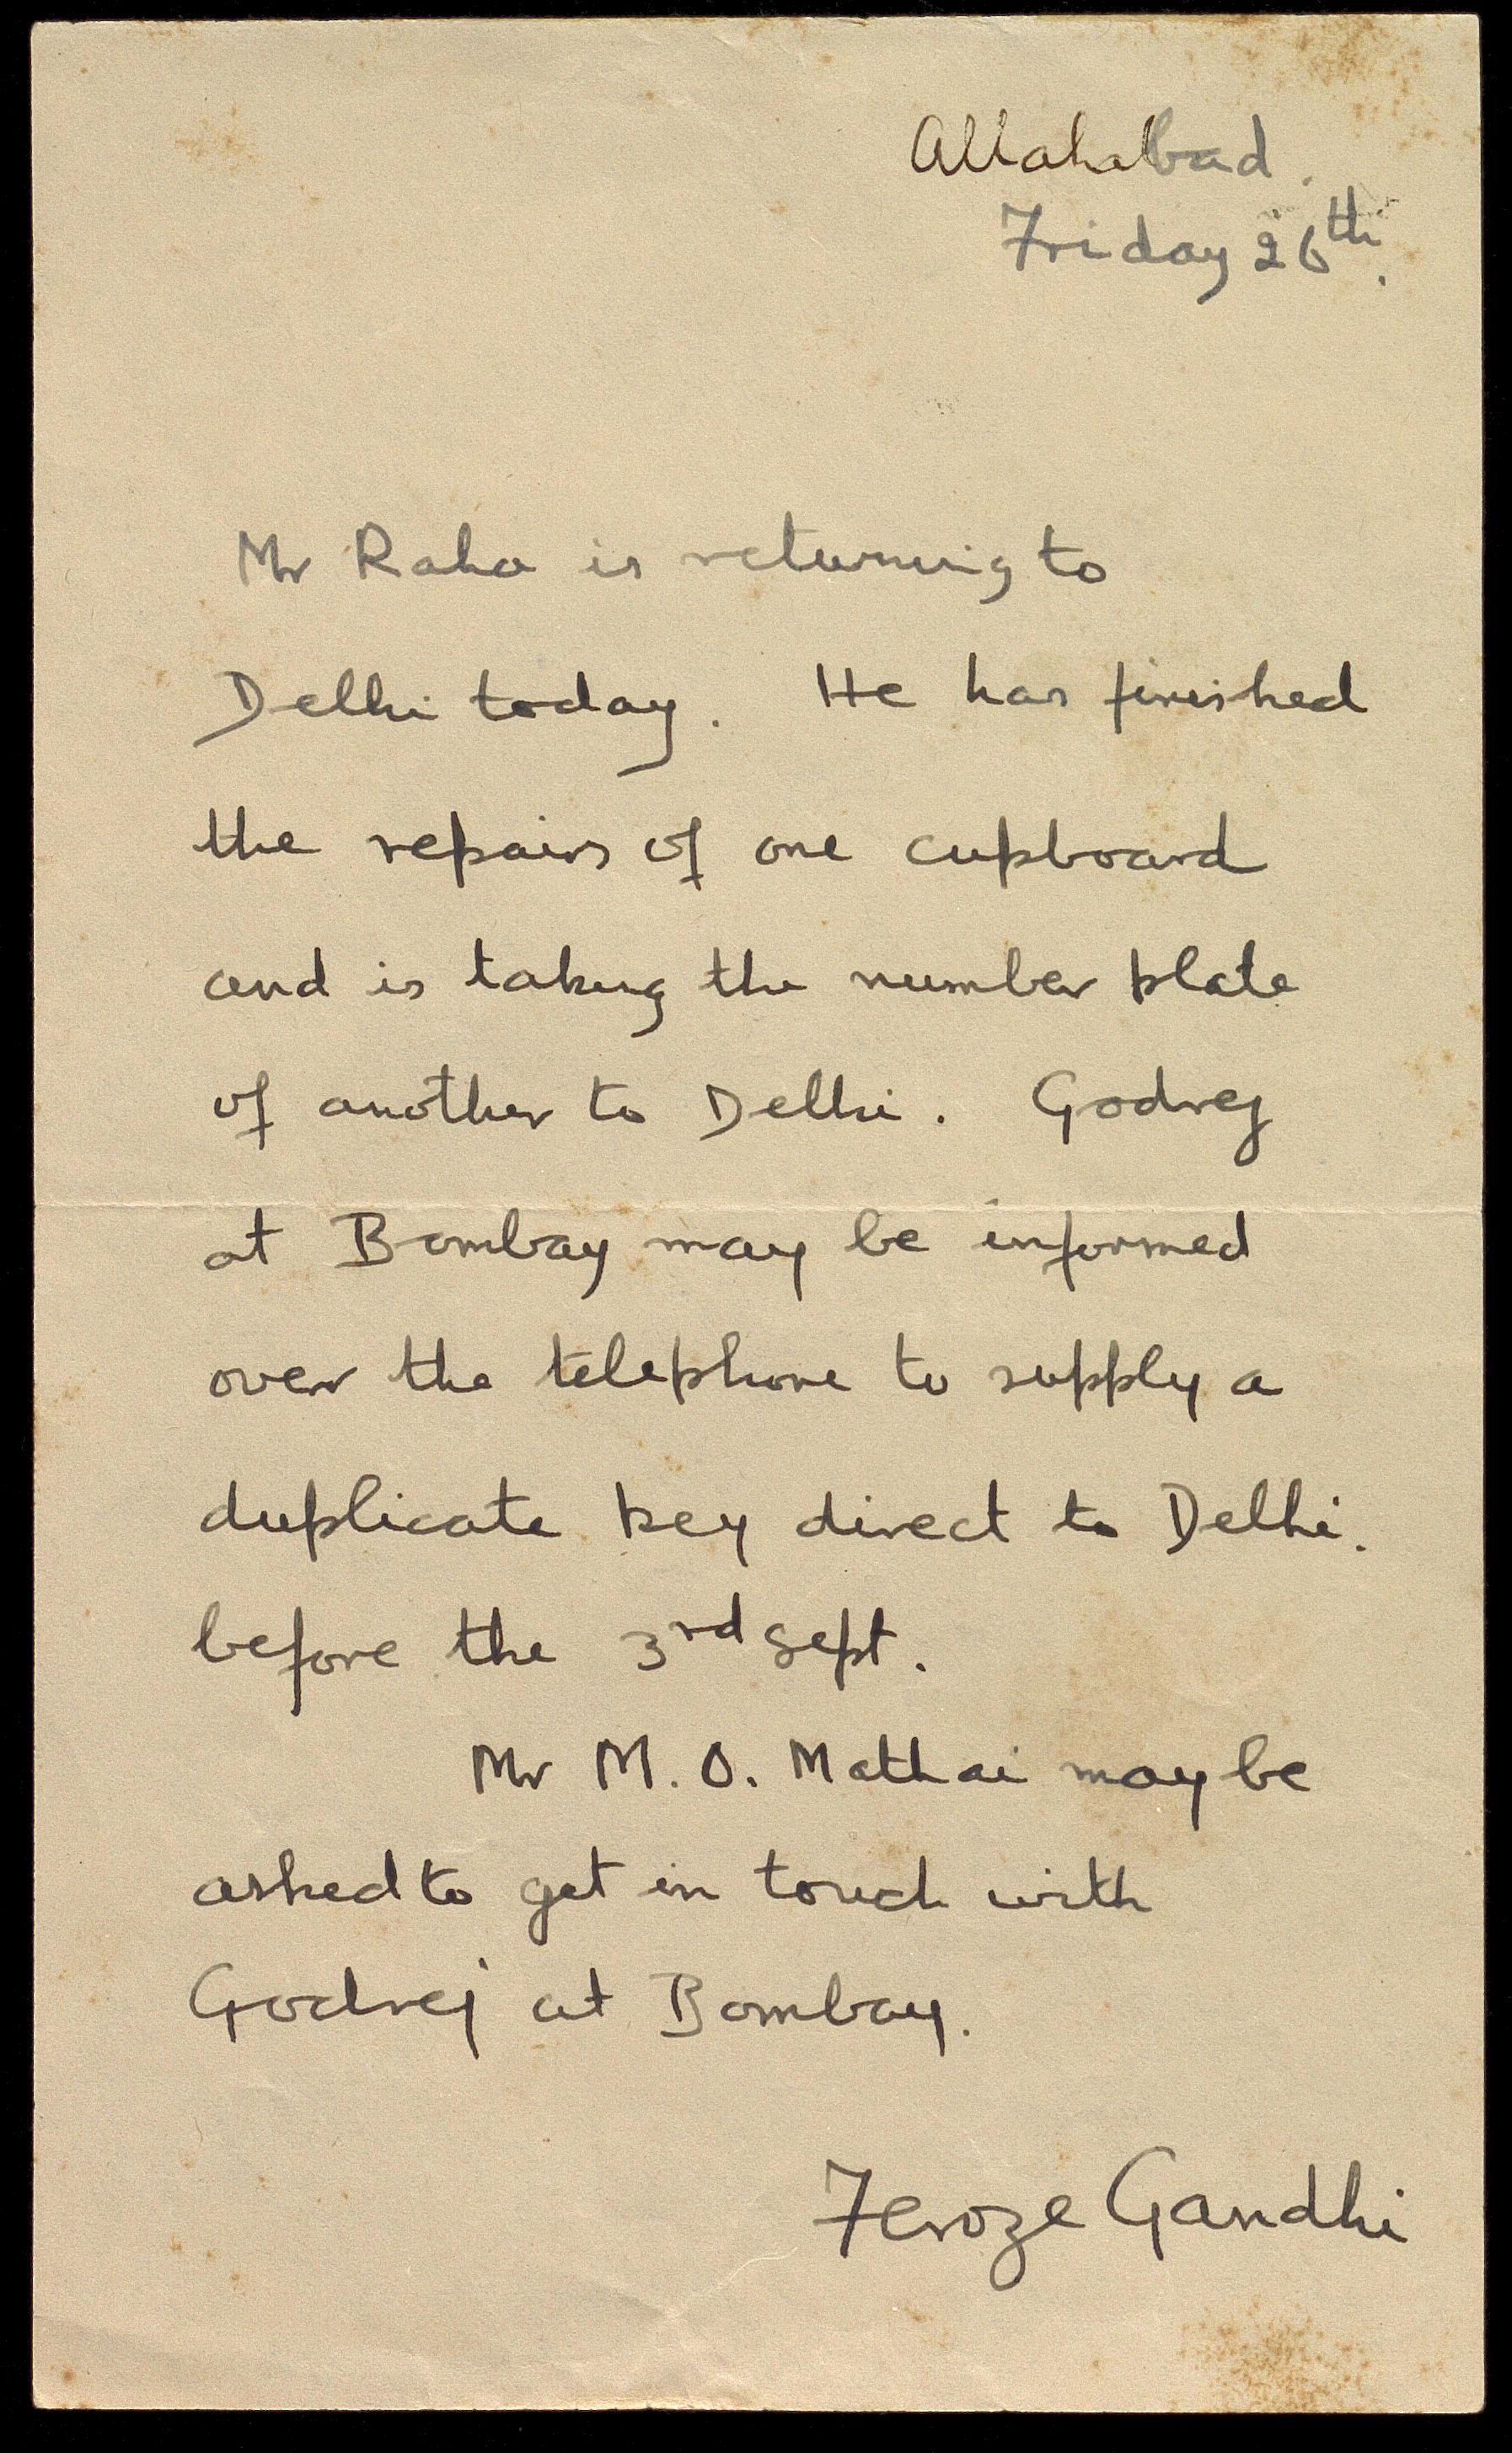 Allahabad.
Friday 26th.
Mr Raha is returning to
Delhi today. He has finished
the repairs of one cupboard
and is taking the number plate
of another to Delhi. Godrej
at Bombay may be informed
over the telephone to supply a
duplicate key direct to Delhi.
before the 3rd Sept.
Mr M. O. Mathai may be
asked to get in touch with
Godrej at Bombay.
Feroze Gandhi